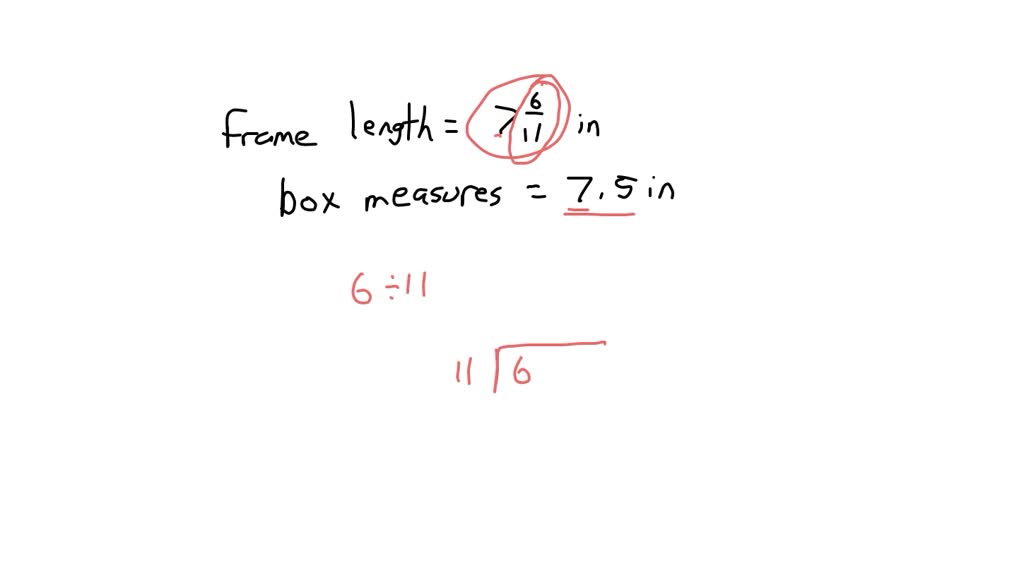 frame length = 7 6/11 in
box measures = 7.5 in
6 ÷ 11
11 6